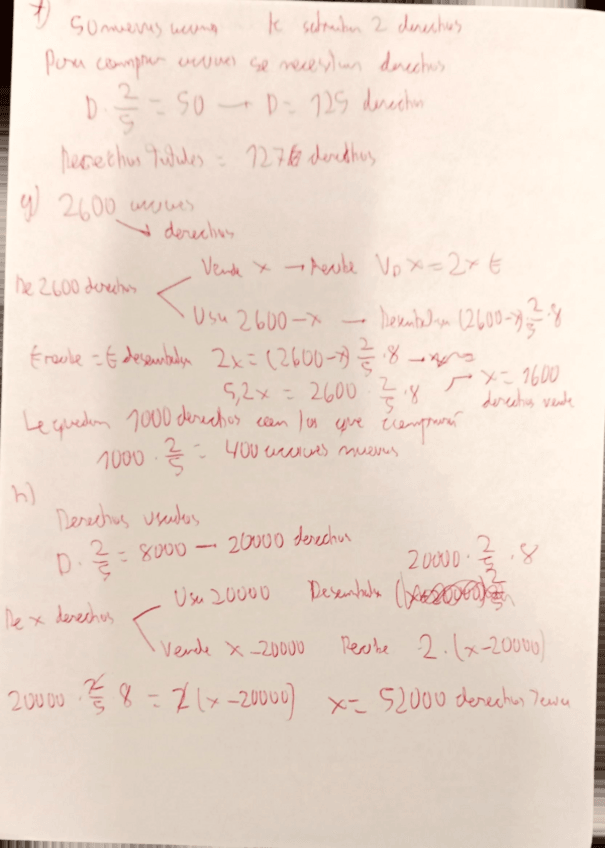 f) 50 nuevas acciones le sobraban 2 derechos
Para comprar acciones se necesitan derechos
D · 2/5 = 50 → D = 125 derechos
Derechos = 127 derechos
g) 2600 acciones
→ derechos
De 2600 derechos
Vende x → Recibe V_D x = 2x €
Usa 2600-x → Desembolsa (2600-x) · 2/5 · 8
€ recibe = € desembolsa 2x = (2600-x) 2/5 · 8 →
5,2x = 2600 · 2/5 · 8 → x = 1600
derechos vende
Le quedan 1000 derechos con los que comprará
1000 · 2/5 = 400 acciones nuevas
h)
Derechos usados
D · 2/5 = 8000 — 20000 derechos
20000 · 2/5 · 8
De x derechos
Usa 20000 Desembolsa
Vende x-20000 Recibe 2·(x-20000)
20000 · 2/5 8 = 2(x-20000) x = 52000 derechos